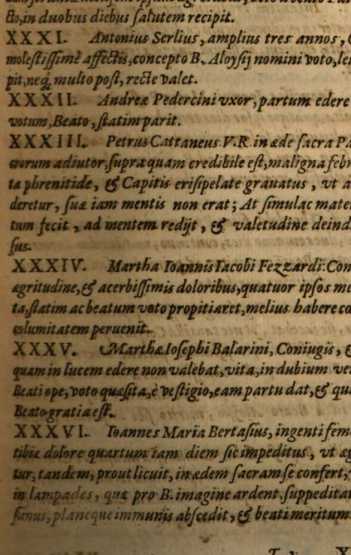 cto, in duobus diebus salutem recipit.
XXXI. Antonius Serlius, amplius tres annos,
molestissimè affectis, concepto B. Aloysij nomini voto, le
pit, neq; multo post, rectè valet.
XXXII. Andreæ Pedercini vxor, partum edere
votum, Beato, statim parit.
XXXIII. Petrus Cattaneus V.R. in æde sacra Pa
corum adiutor, supra quam credibile est, maligna febr
ta phrenitide, & Capitis erisipelate grauatus, vt a
deretur, suæ iam mentis non erat; At simulac mate
tum fecit, ad mentem redijt, & valetudine deind
sus.
XXXIV. Martha Ioannis Iacobi Fezzardi Con
ægritudine, & acerbissimis doloribus, quatuor ipsos me
ta, statim ac beatum voto propitiaret, melius habere cœ
columitatem peruenit.
XXXV. Martha Iosephi Balarini, Coniugis, &
quam in lucem edere non valebat, vita, in dubium ve
Beati ope, voto quæsita, è vestigio, eam partu dat, & qu
Beato gratia est.
XXXVI. Ioannes Maria Bertasius, ingenti fem
tibiæ dolore quartum iam diem sic impeditus, vt æg
tur, tandem, prout licuit, in ædem sacram se confert,
in lampades, quæ pro B. imagine ardent, suppeditar
sanus, planeque immunis abscedit, & beati meritum